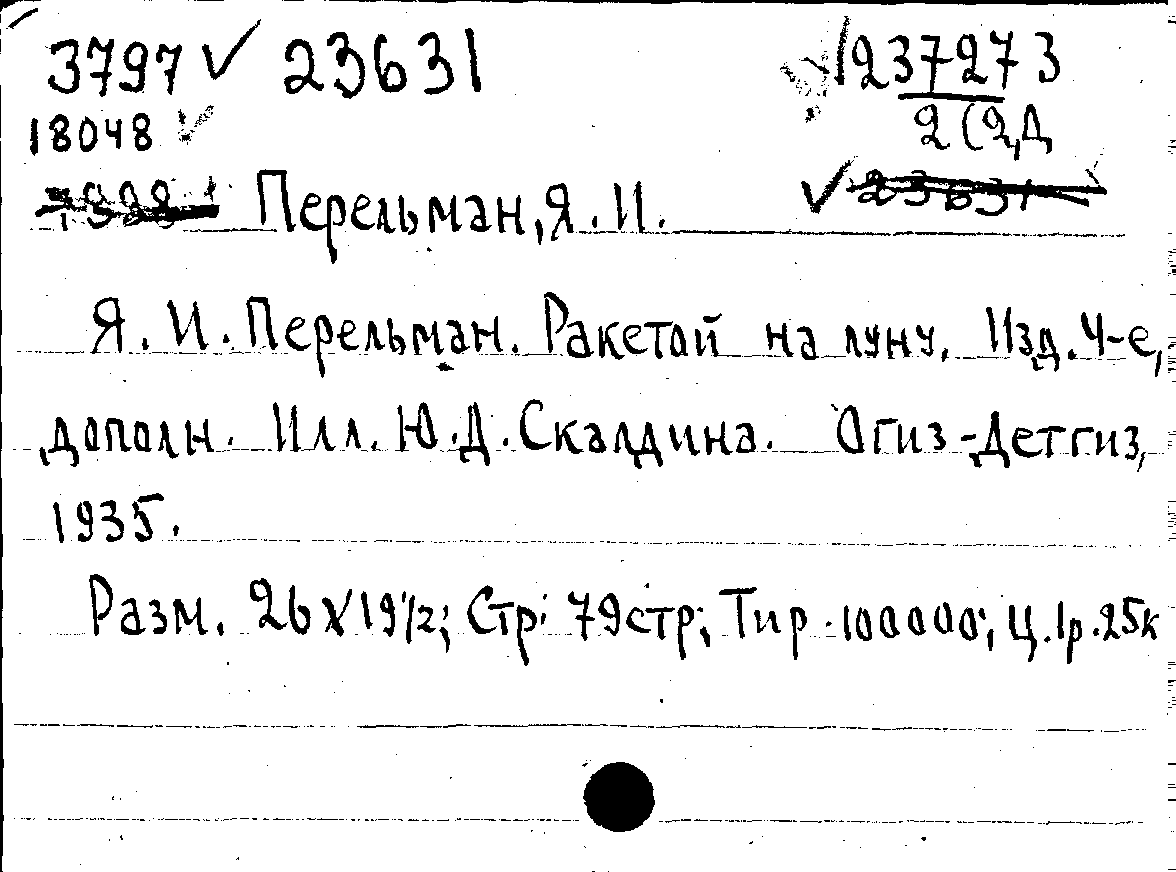 3797 ✓ 23631 √237273
18048 ✓ 2(2,Д
Перельман, Я. И. ✓ 23631
Я. И. Перельман. Ракетой на луну. Изд. 4-е,
дополн. Илл. Ю. Д. Скалдина. Огиз-Детгиз,
1935.
Разм. 26 X 19 1/2; Стр: 79 стр; Тир. 100000; Ц. 1р. 25к